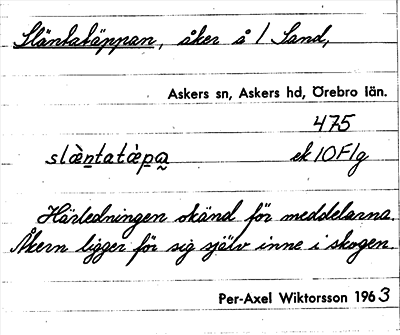 Släntatäppan, åker å 1 Sand,
Askers sn, Askers hd, Örebro län.
475
slæ̀ntatæ̀pa ek 10F1g
Härledningen okänd för meddelarna.
Åkern ligger för sig själv inne i skogen.
Per-Axel Wiktorsson 1963